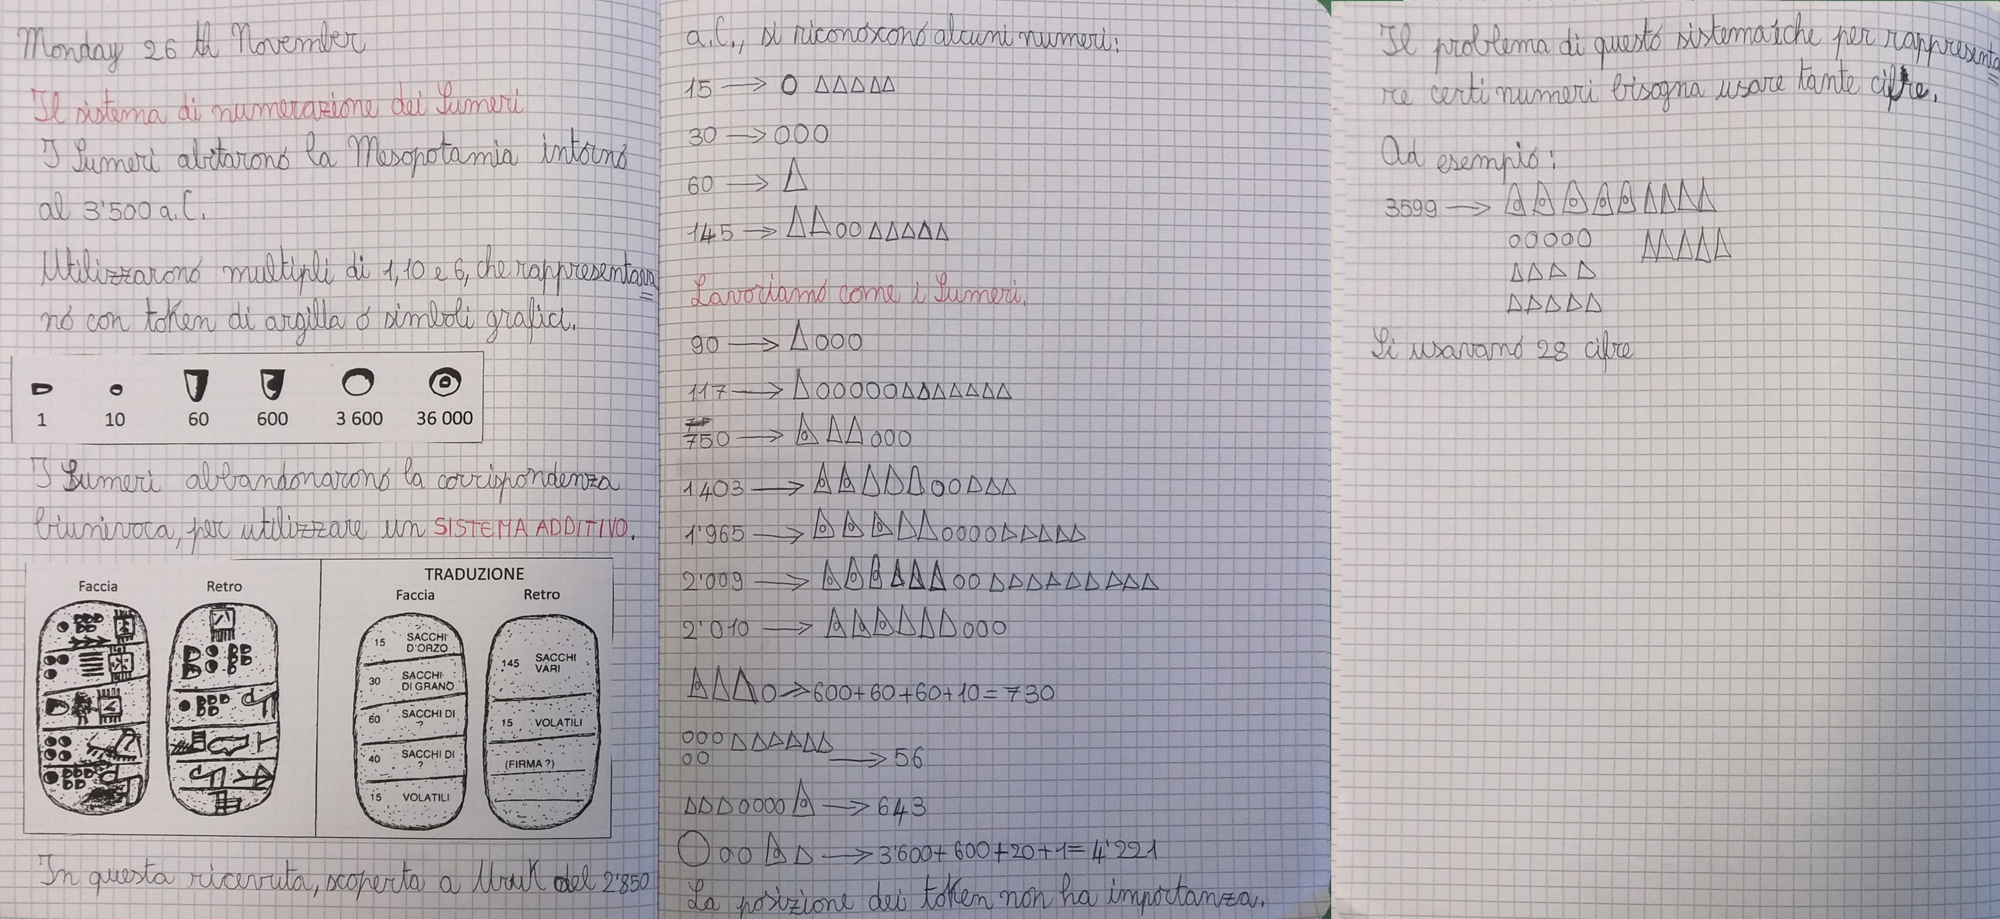 Monday 26 th November
Il sistema di numerazione dei Sumeri
I Sumeri abitarono la Mesopotamia intorno
al 3'500 a.C.
Utilizzarono multipli di 1, 10 e 6, che rappresentava
no con token di argilla o simboli grafici.
1 10 60 600 3 600 36 000
I Sumeri abbandonarono la corrispondenza
biunivoca, per utilizzare un SISTEMA ADDITIVO.
Faccia Retro
TRADUZIONE
Faccia Retro
15 SACCHI D'ORZO
30 SACCHI DI GRANO
60 SACCHI DI ?
40 SACCHI DI ?
15 VOLATILI
145 SACCHI VARI
15 VOLATILI
(FIRMA ?)
In questa ricevuta, scoperta a Uruk del 2'850
a.C., si riconoscono alcuni numeri:
15 → O ΔΔΔΔΔ
30 → OOO
60 → Δ
145 → ΔΔOOΔΔΔΔΔ
Lavoriamo come i Sumeri.
90 → ΔOOO
117 → ΔOOOOOΔΔΔΔΔΔΔ
750 →
1403 →
1'965 →
2'009 →
2'010 →
→ 600+60+60+10=730
→ 56
→ 643
→ 3'600+600+20+1= 4'221
La posizione dei token non ha importanza.
Il problema di questo sistema è che per rappresenta
re certi numeri bisogna usare tante cifre.
Ad esempio:
3599 →
OOOOO
ΔΔΔΔ
ΔΔΔΔΔ
Si usavano 28 cifre